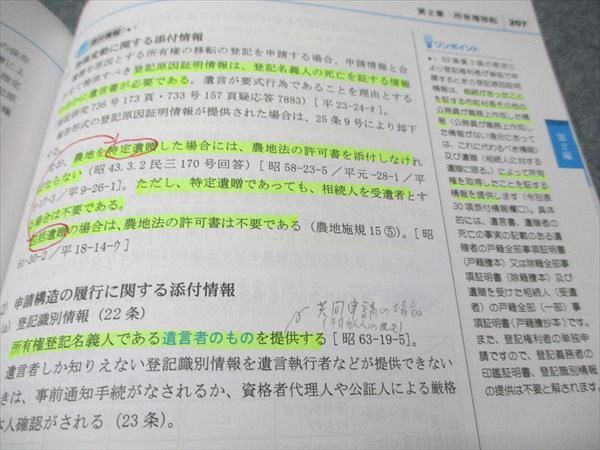 第2章 所有権移転 207
変動に関する添付情報
を原因とする所有権の移転の登記を申請する場合、申請情報と合
て提供すべき登記原因証明情報は、登記名義人の死亡を証する情報
かに遺言書が必要である。遺言が要式行為であることを理由とする
記研究736号173頁・733号157頁質疑応答7883)[平23-24-オ]。
報告形式の登記原因証明情報が提供された場合は、25条9号により却下
する。
なお、農地を特定遺贈した場合には、農地法の許可書を添付しなけれ
ばならない(昭43.3.2民三170号回答)[昭58-23-5/平元-28-1/平
-17-3/平9-26-1]。ただし、特定遺贈であっても、相続人を受遺者とす
る場合は不要である。
包括遺贈の場合は、農地法の許可書は不要である(農地施規15⑤)。[昭
61-30-2/平18-14-ウ]
(2) 申請構造の履行に関する添付情報
(a) 登記識別情報(22条)
共同申請の場合
所有権登記名義人である遺言者のものを提供する[昭63-19-5]。
遺言者しか知りえない登記識別情報を遺言執行者などが提供できない
ときは、事前通知手続がなされるか、資格者代理人や公証人による厳格
な本人確認がされる(23条)。
ワンポイント
*1 63条第3項の規定に
より登記権利者が単独で申
請するときの登記原因証明
情報は、相続があったこと
を証する市町村長その他の
公務員が職務上作成した情報
(公務員が職務上作成し
た情報がない場合にあって
は、これに代わるべき情報)
及び遺贈(相続人に対する
遺贈に限る。)によって所有
権を取得したことを証する
情報を提供します(令別表
30項添付情報欄ロ)。具体
的には、遺言書、遺贈者の
死亡の事実の記載のある遺
贈者の戸籍全部事項証明書
(戸籍謄本)又は除籍全部事
項証明書(除籍謄本)及び
遺贈を受けた相続人(受遺
者)の戸籍全部(一部)事
項証明書(戸籍謄抄本)です。
また、登記権利者の単独申
請ですので、登記義務者の
印鑑証明書、登記識別情報
の提供は不要と解されます。
第2編